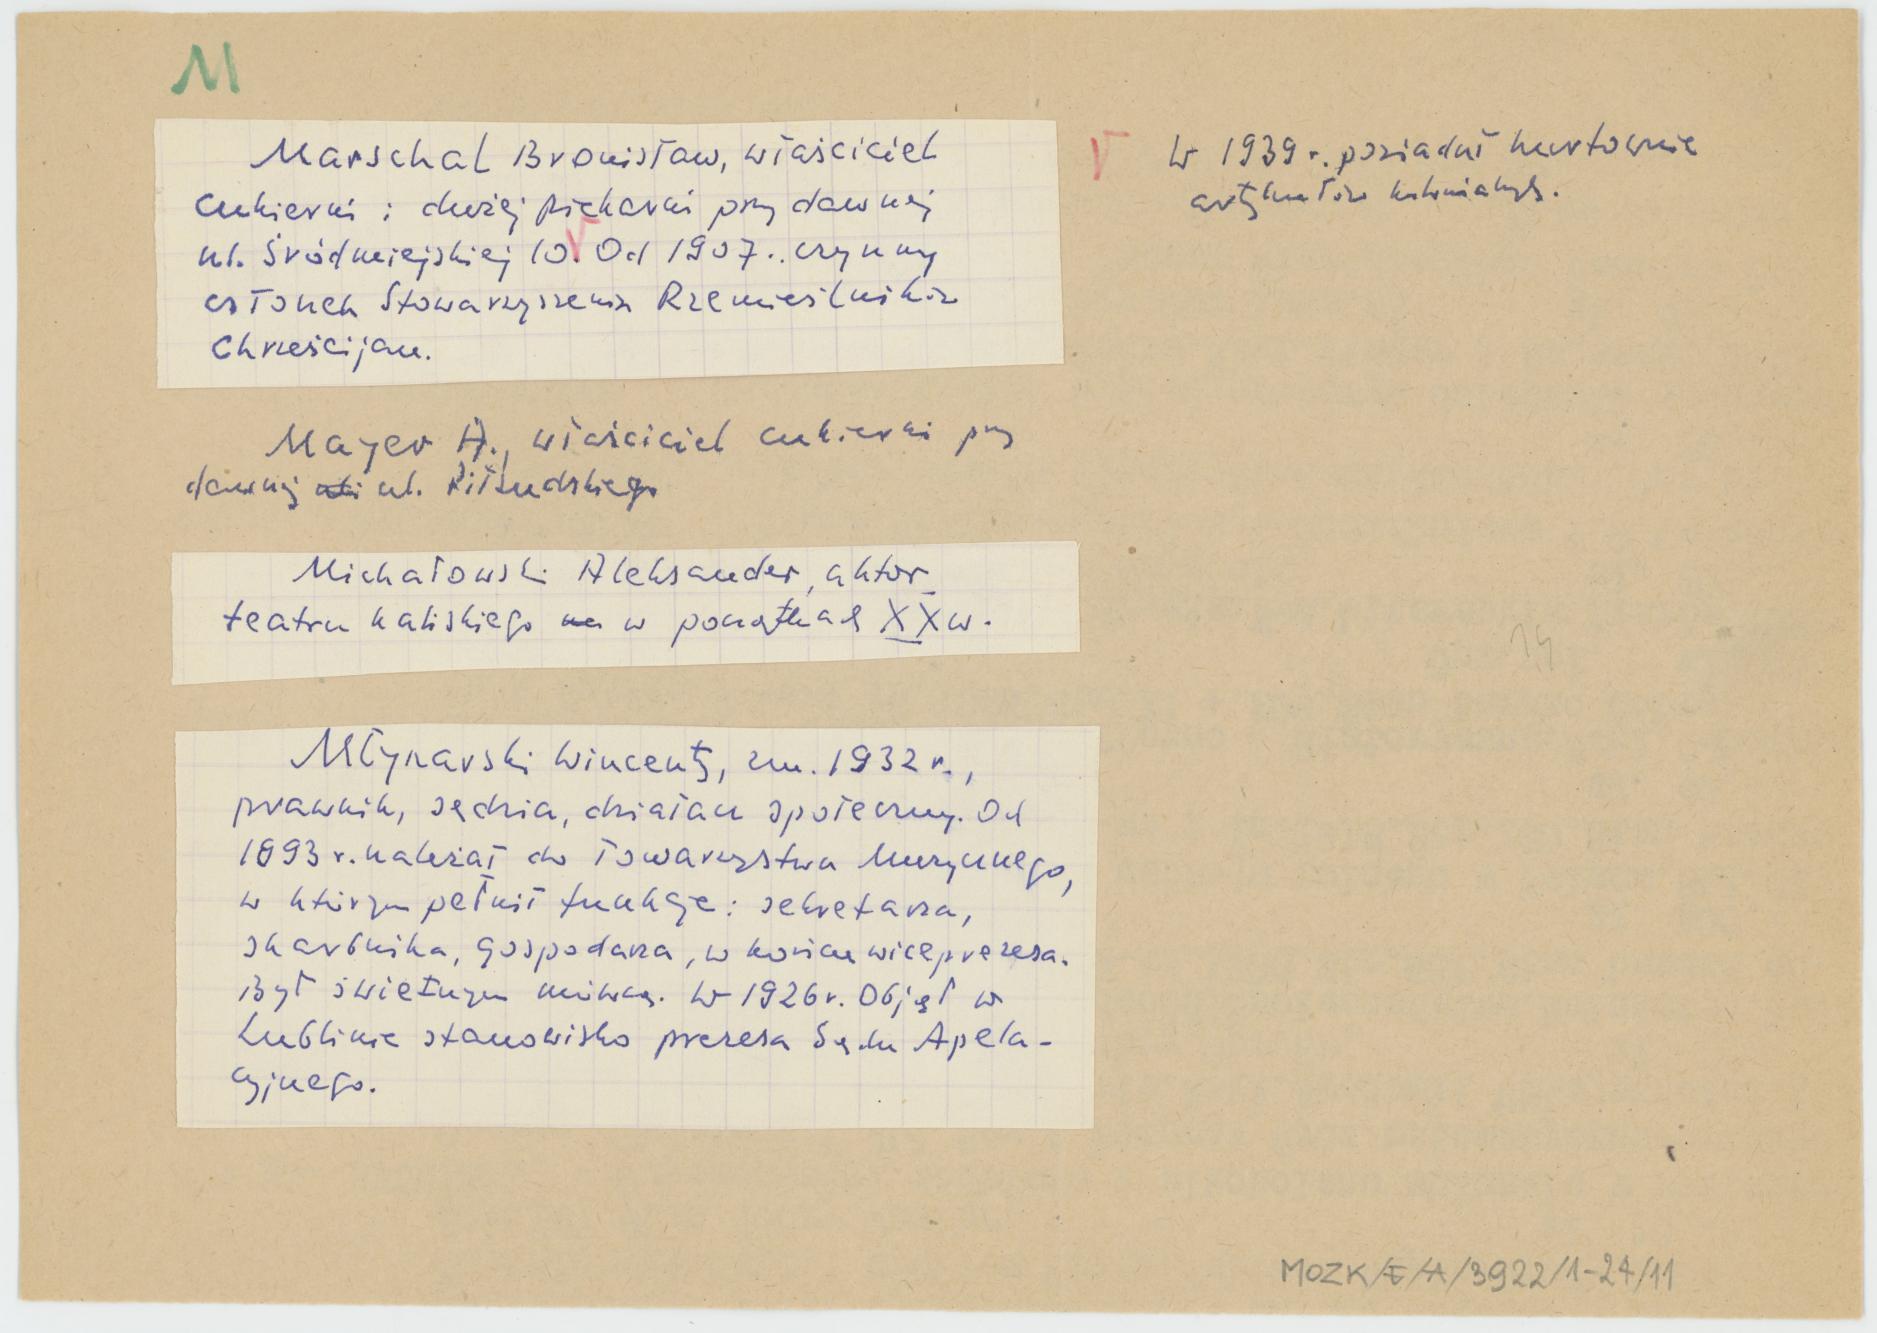 M
Marschal Bronisław, właściciel
cukierni i dużej piekarni przy dawnej
ul. Śródmiejskiej 10. Od 1907.. czynny
członek Stowarzyszenia Rzemieślników
Chrześcijan.
W 1939 r. posiadał hurtownię
artykułów kolonialnych.
Mayer A., właściciel cukierni przy
dawnej ul. Piłsudskiego
Michałowski Aleksander, aktor
teatru kaliskiego w początkach XX w.
Młynarski Wincenty, zm. 1932 r.,
prawnik, sędzia, działacz społeczny. Od
1893 r. należał do Towarzystwa Muzycznego,
w którym pełnił funkcję: sekretarza,
skarbnika, gospodarza, w końcu wiceprezesa.
Był świetnym mówcą. W 1926 r. objął w
Lublinie stanowisko prezesa Sądu Apela-
cyjnego.
14
MOZK/E/A/3922/1-24/11